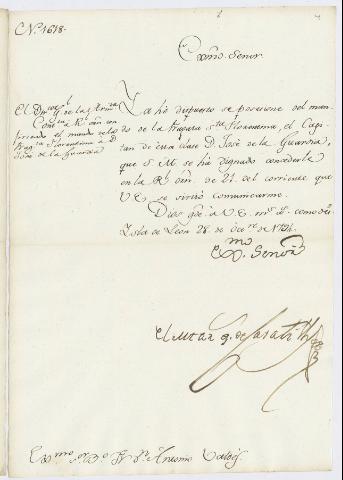 C Nº. 1618.
Exmo. Senor
El Dor. Gral. de la Armda.
Contexta Rl. orn. con
firiendo el mando de la
Fraga. Florentina a D.
Josef de la Guardia
Ya hé dispuesto se posesione del man
do de la fragata Sta. Florentina, el Capi
tan de esta clase D. Josef de la Guardia,
que S. M. se há dignado concederle
en la Rl. orn. de 21. del corriente que
V E se sirvió comunicarme.
Dios gde. á V. E. ms. as. como deseo.
Isla de Leon 28 de Octre. de 1794.
Exmo. Senor
El Marq. de Casa Tilly
Exmo. Sor. Bo. Fr. Dn. Antonio Valdés.